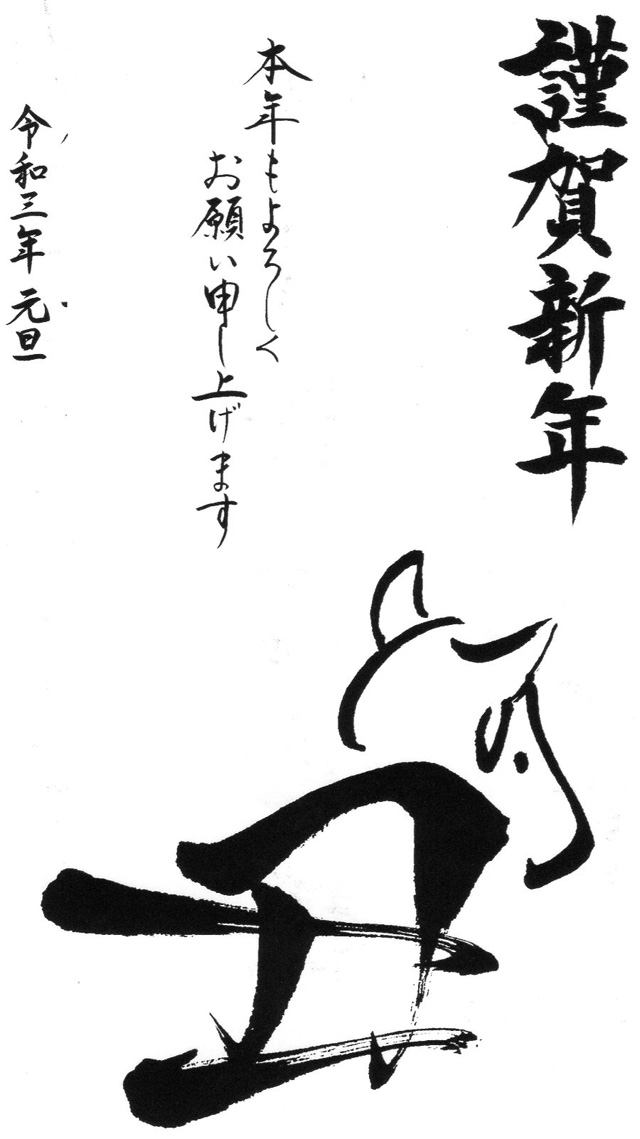 謹賀新年
本年もよろしく
お願い申し上げます
令和三年 元旦
丑